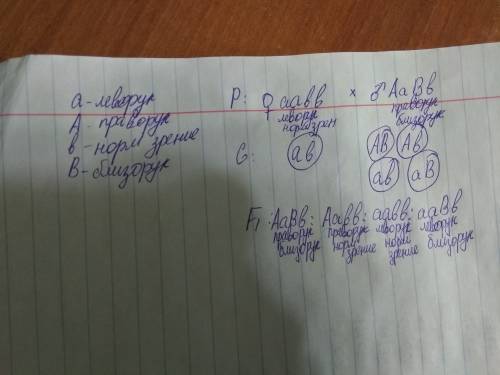 a - леворук
A - праворук
в - норм зрение
B - близорук
P: ♀ аавв × ♂ АаВв
леворук праворук
норм зрен близорук
G: ав АВ Ав
ав аВ
F₁: АаВв : Аавв : аавв : ааВв
праворук праворук леворук леворук
близорук норм зрение норм зрение близорук